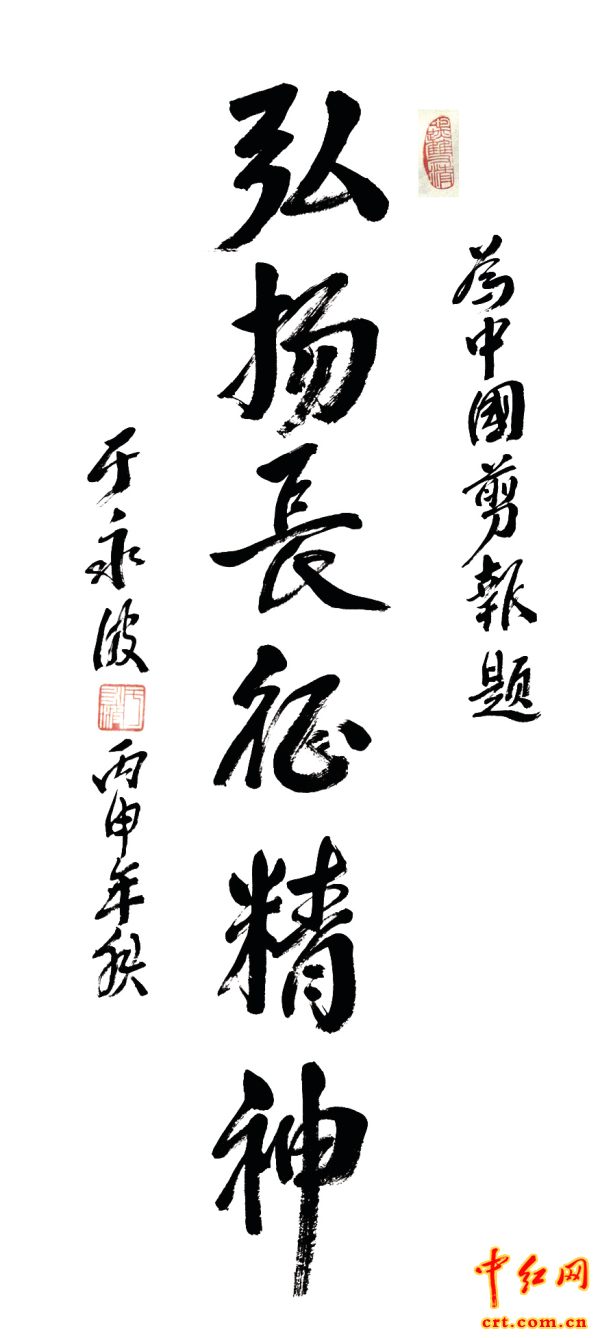 为中國剪報题
弘扬長征精神
于永波
丙申年秋
中红网
crt.com.cn